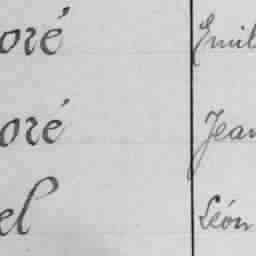 oré Emil
oré Jean
el Léon